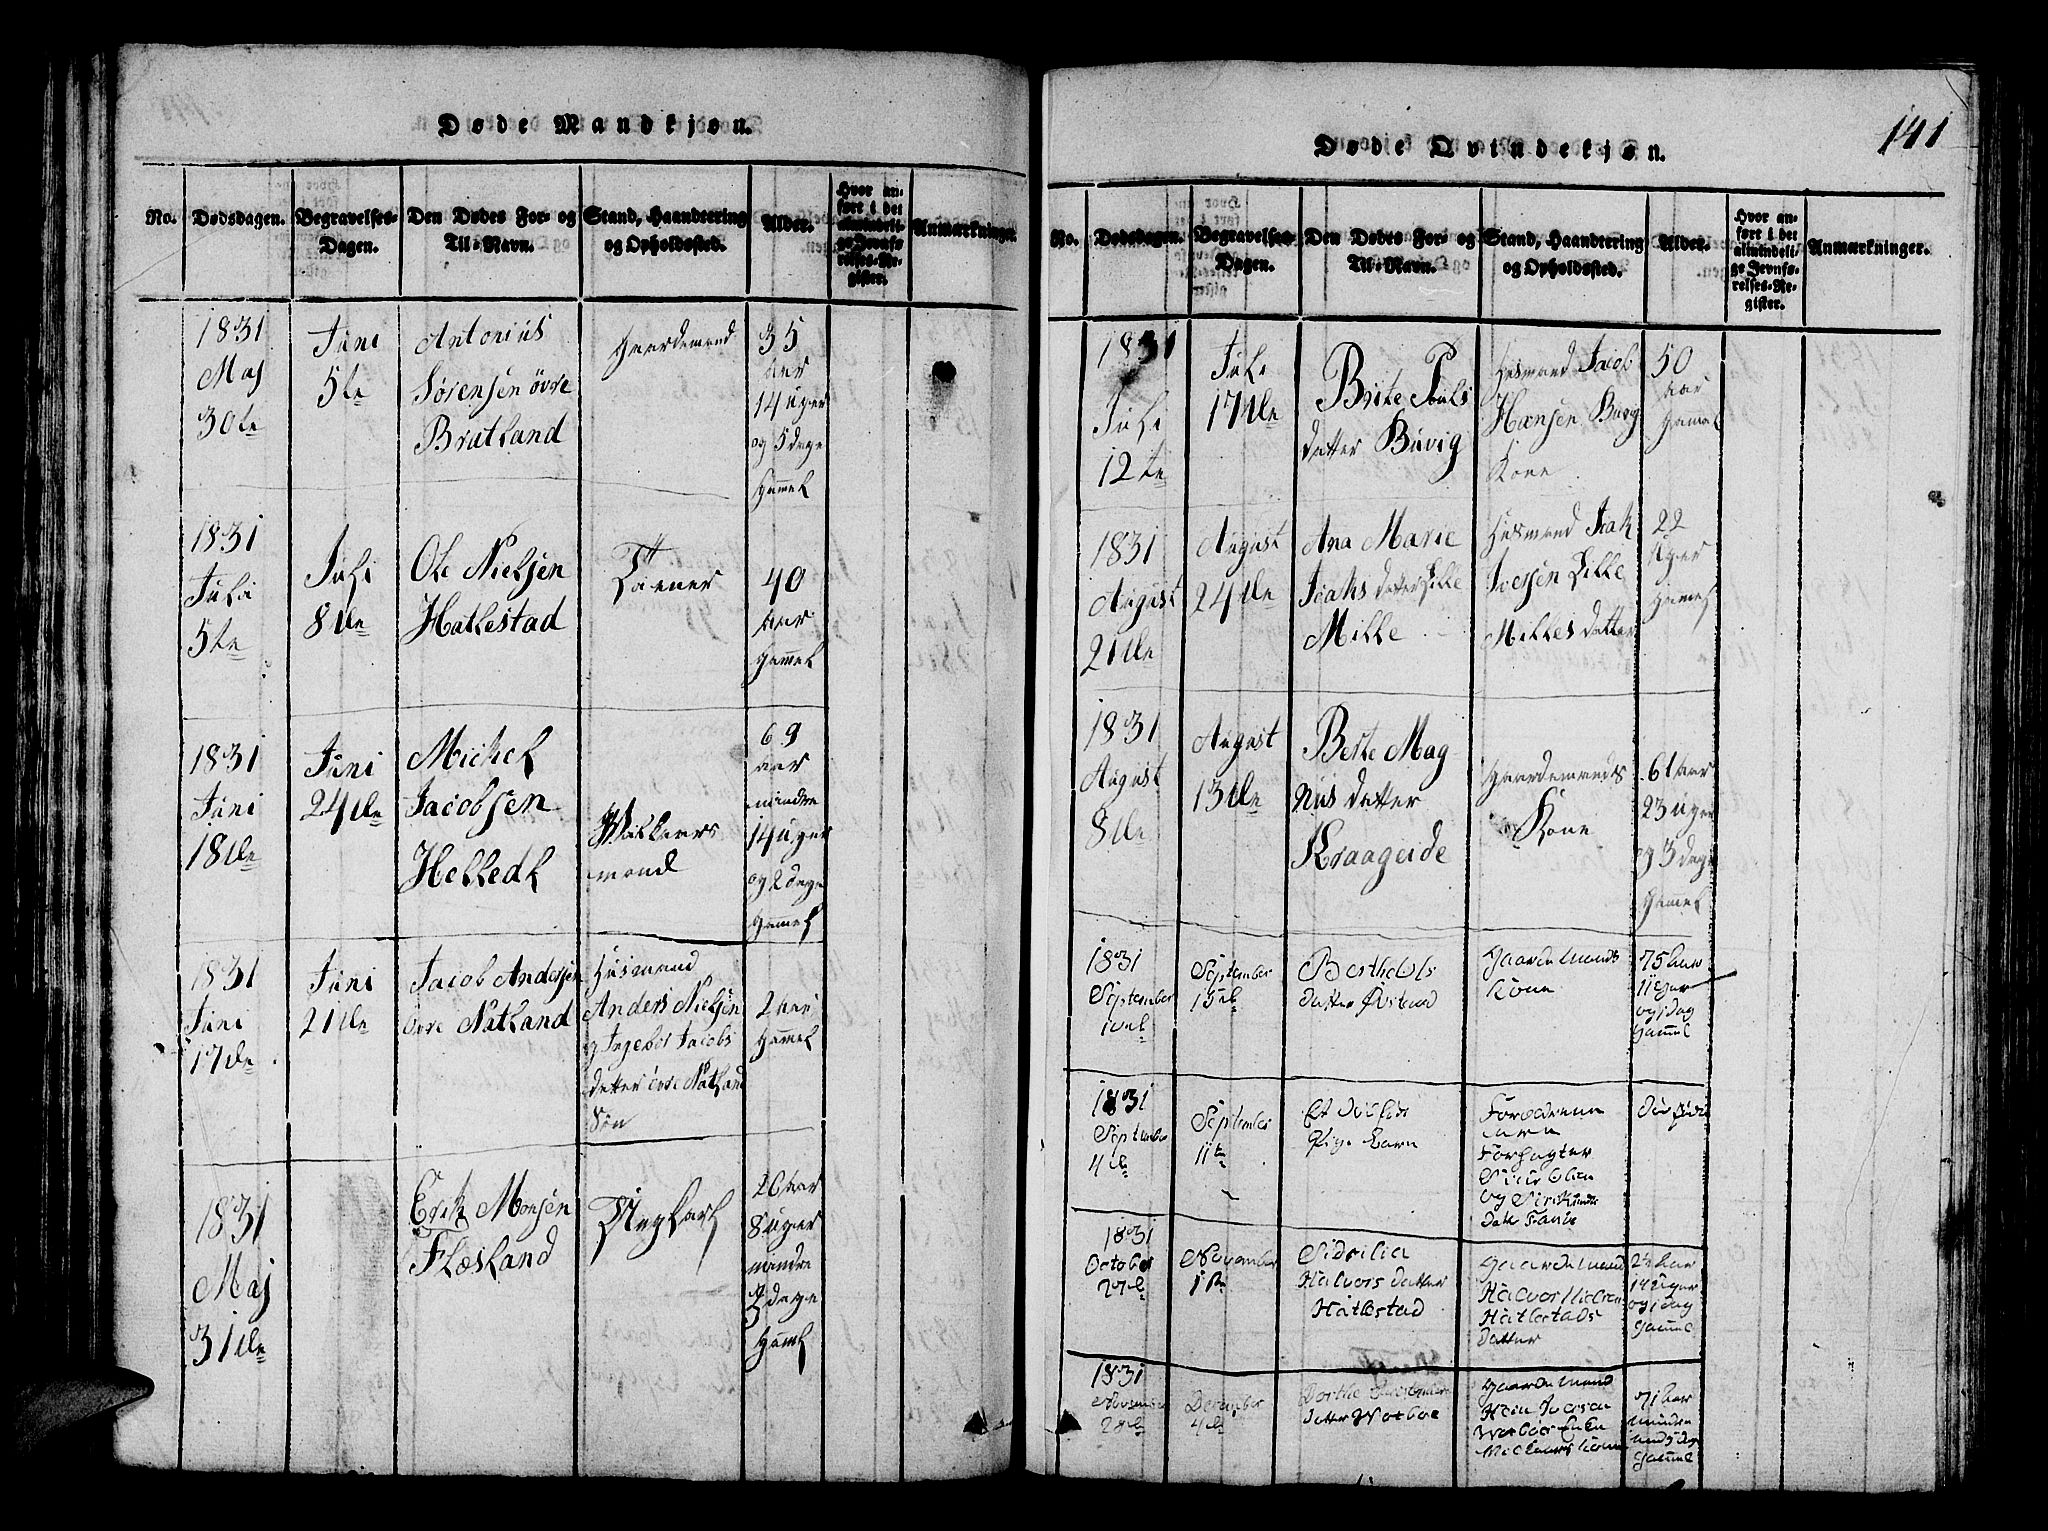 Døde Mandkjøn.
No.
Dødsdagen.
Begravelses-
Dagen.
Den Dødes For- og
Til-Navn.
Stand, Haandtering
og Opholdssted.
Alder.
Hvor an-
ført i det
almindeli-
ge Jevnfø-
relses-Re-
gister.
Anmærkninger.
1831
Maj
30te
Juni
5te
Antonius
Sørensen övre
Bratland
Gaardemand
35
aar
14 uger
og 5 dage
Gammel
1831
Juli
5te
Juli
8de
Ole Nielsen
Hatlestad
40
aar
Gammel
1831
Juni
18de
Juni
24de
Mickel
Jacobsen
Helledl
mand
69
aar
mindre
14 uger
og 2 dage
Gammel
1831
Juni
17de
Juni
21de
Jacob Andersen
övre Natland
Husmand
Anders Nielsen
og Ingebor Jacobs
datter övre Natland
Sön
2 aar
Gammel
1831
Maj
31de
Erik Monsen
Flæsland
Ungkarl
20 aar
8 uger
mindre
dage
Gammel
Døde Qvindekjøn.
141
No.
Dødsdagen.
Begravelses-
Dagen.
Den Dødes For- og
Til-Navn.
Stand, Haandtering
og Opholdssted.
Alder.
Hvor an-
ført i det
almindeli-
ge Jevnfø-
relses-Re-
gister.
Anmærkninger.
1831
Juli
12te
Juli
17de
Brite Pouls
datter Buvig
Husmand Jacob
Hansen Buvig
Kone
50
aar
Gamel
1831
August
21de
August
24de
Ana Marie
Isaks datter Lille
Mille
Husmand Isak
Iversen Lille
Milles datter
22
Uger
Gamel
1831
August
8de
August
13de
Berte Mag
nus datter
Kraageide
Gaardemands
Kone
61 aar
23 uger
og 3 dage
Gammel
1831
September
September
Berthe Ols
datter Östaad
Gaardemands
Kone
75 Aar
11 Uger
og 1 dag
Gammel
1831
September
4de
September
11te
Et
Pige Barn
Forældrene
Forpagter
Siur Olsen
og
1831
October
27de
November
1te
Sidsilia
Halvors datter
Hatlestad
Gaardemand
Halvor Nielsen
Hatlestads
datter
14 Uger
og 1 dag
Gammel
1831
November
28de
December
4de
Dorthe
datter Watboe
Gaardemand
Iversen
71 Aar
mindre
Gammel